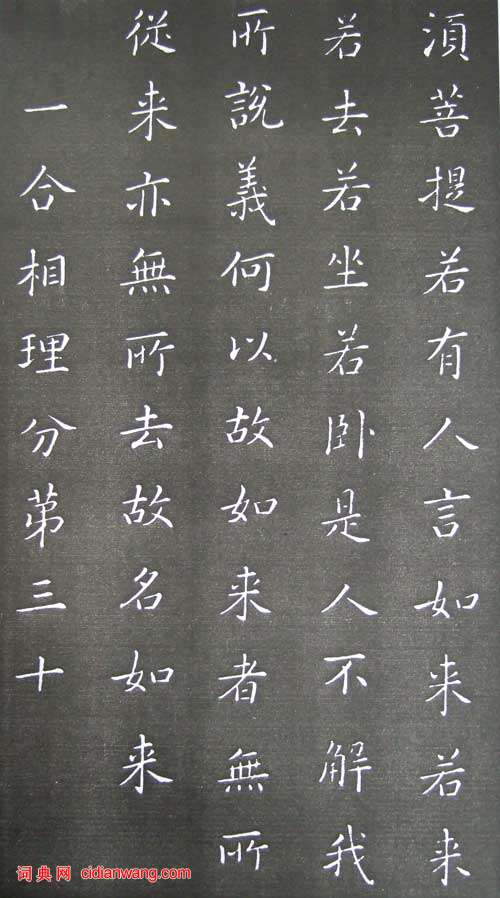 湏菩提若有人言如来若来
若去若坐若卧是人不解我
所說義何以故如来者無所
從来亦無所去故名如来
一合相理分苐三十
词典网 cidianwang.com